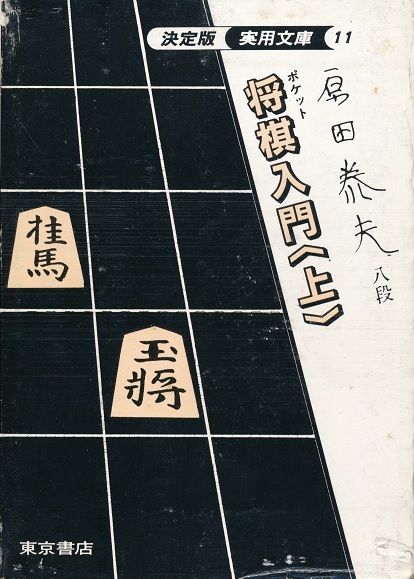 決定版 実用文庫 11
原田泰夫 八段
ポケット
将棋入門〈上〉
桂馬
玉将
東京書店